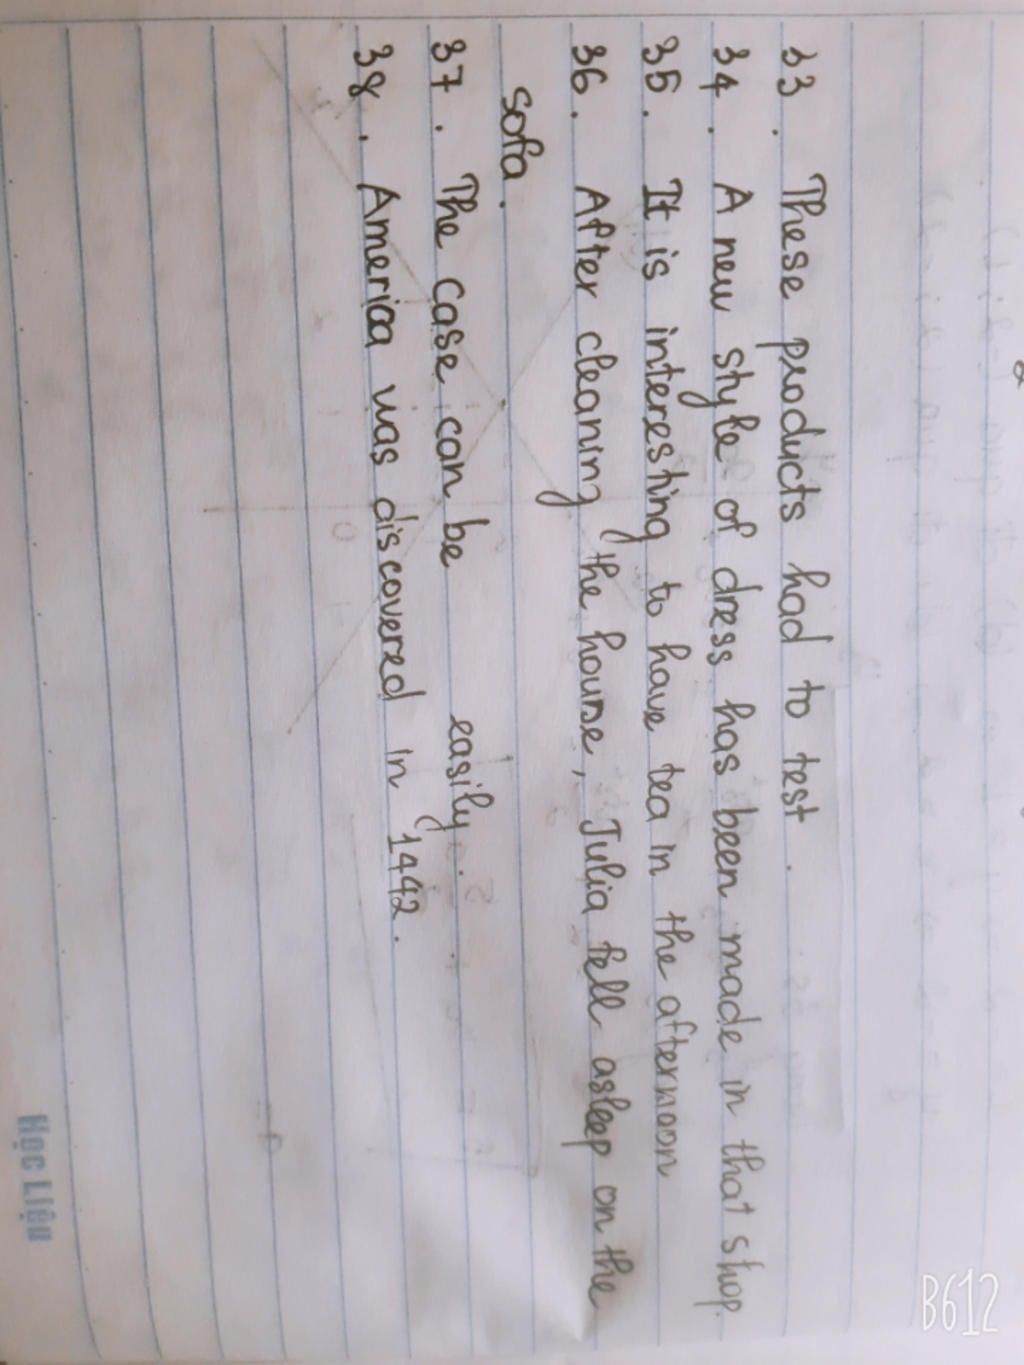 33. These products had to test.
34. A new style of dress has been made in that shop.
35. It is interesting to have tea in the afternoon
36. After cleaning the house, Julia fell asleep on the
sofa.
37. The case can be easily.
38. America was discovered in 1492.
Học Liệu
B612